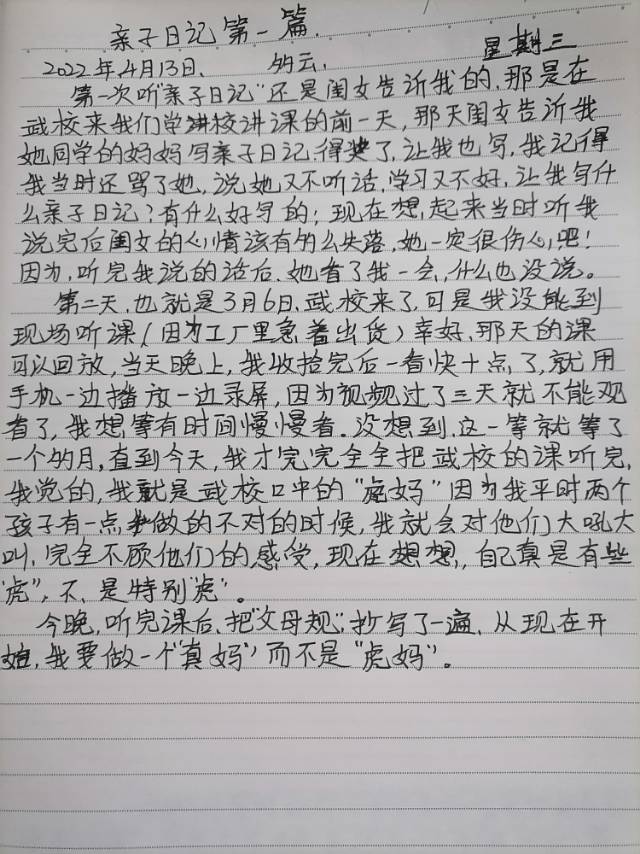 亲子日记第一篇.
2022年4月13日. 多云. 星期三
第一次听"亲子日记"还是闺女告诉我的,那是在
武校来我们学校讲课的前一天,那天闺女告诉我
她同学的妈妈写亲子日记得奖了,让我也写,我记得
我当时还骂了她,说她又不听话,学习又不好,让我写什
么亲子日记?有什么好写的;现在想起来当时听我
说完后闺女的心情该有多么失落,她一定很伤心吧!
因为,听完我说的话后,她看了我一会,什么也没说。
第二天,也就是3月6日,武校来了,可是我没能到
现场听课(因为工厂里急着出货)幸好,那天的课
可以回放,当天晚上,我收拾完后一看快十点了,就用
手机一边播放一边录屏,因为视频过了三天就不能观
看了,我想等有时间慢慢看.没想到,这一等就等了
一个多月,直到今天,我才完完全全把武校的课听完,
我觉的,我就是武校口中的"虎妈"因为我平时两个
孩子有一点做的不对的时候,我就会对他们大吼大
叫,完全不顾他们的感受,现在想想,自己真是有些
"虎",不,是特别"虎"。
今晚,听完课后,把"父母规",抄写了一遍,从现在开
始,我要做一个"真妈",而不是"虎妈"。